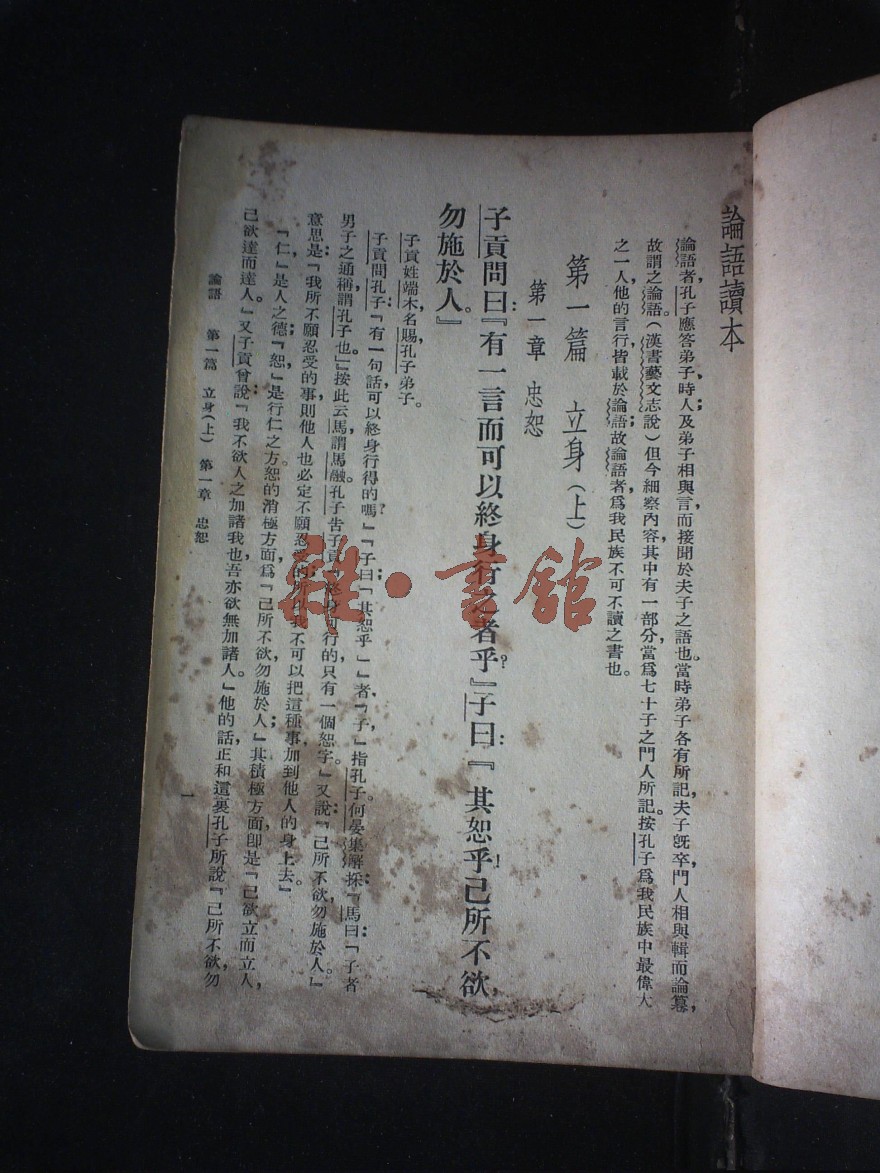 論語讀本
論語者，孔子應答弟子時人及弟子相與言，而接聞於夫子之語也。當時弟子各有所記；夫子旣卒，門人相與輯而論篹，
故謂之論語。（漢書藝文志說）但今細察內容，其中有一部分當爲七十子之門人所記。按孔子爲我民族中最偉大
之一人，他的言行，皆載於論語；故論語者，爲我民族不可不讀之書也。
第一篇 立身（上）
第一章 忠恕
子貢問曰：『有一言而可以終身行之者乎？』子曰：『其恕乎！己所不欲，
勿施於人。』
子貢，姓端木，名賜，孔子弟子。
子貢問孔子：『有一句話可以終身行得的嗎？』『子曰「其恕乎」』者；『子，』指孔子。何晏集解採『馬曰：「子者，
男子之通稱，謂孔子也」』按此云馬，謂馬融。孔子告子貢，終身可行的，只有一個恕字。』又說：『己所不欲，勿施於人。』
意思是：『我所不願忍受的事，則他人也必定不願忍受的；所以我不可以把這種事加到他人的身上去。』
『仁，』是人之德；『恕，』是行仁之方。恕的消極方面爲『己所不欲，勿施於人；』其積極方面，卽是『己欲立而立人，
己欲達而達人。』又子貢曾說：『我不欲人之加諸我也，吾亦欲無加諸人。』他的話正和這裏孔子所說『己所不欲，勿
論語 第一篇 立身（上） 第一章 忠恕
一
雜·書館